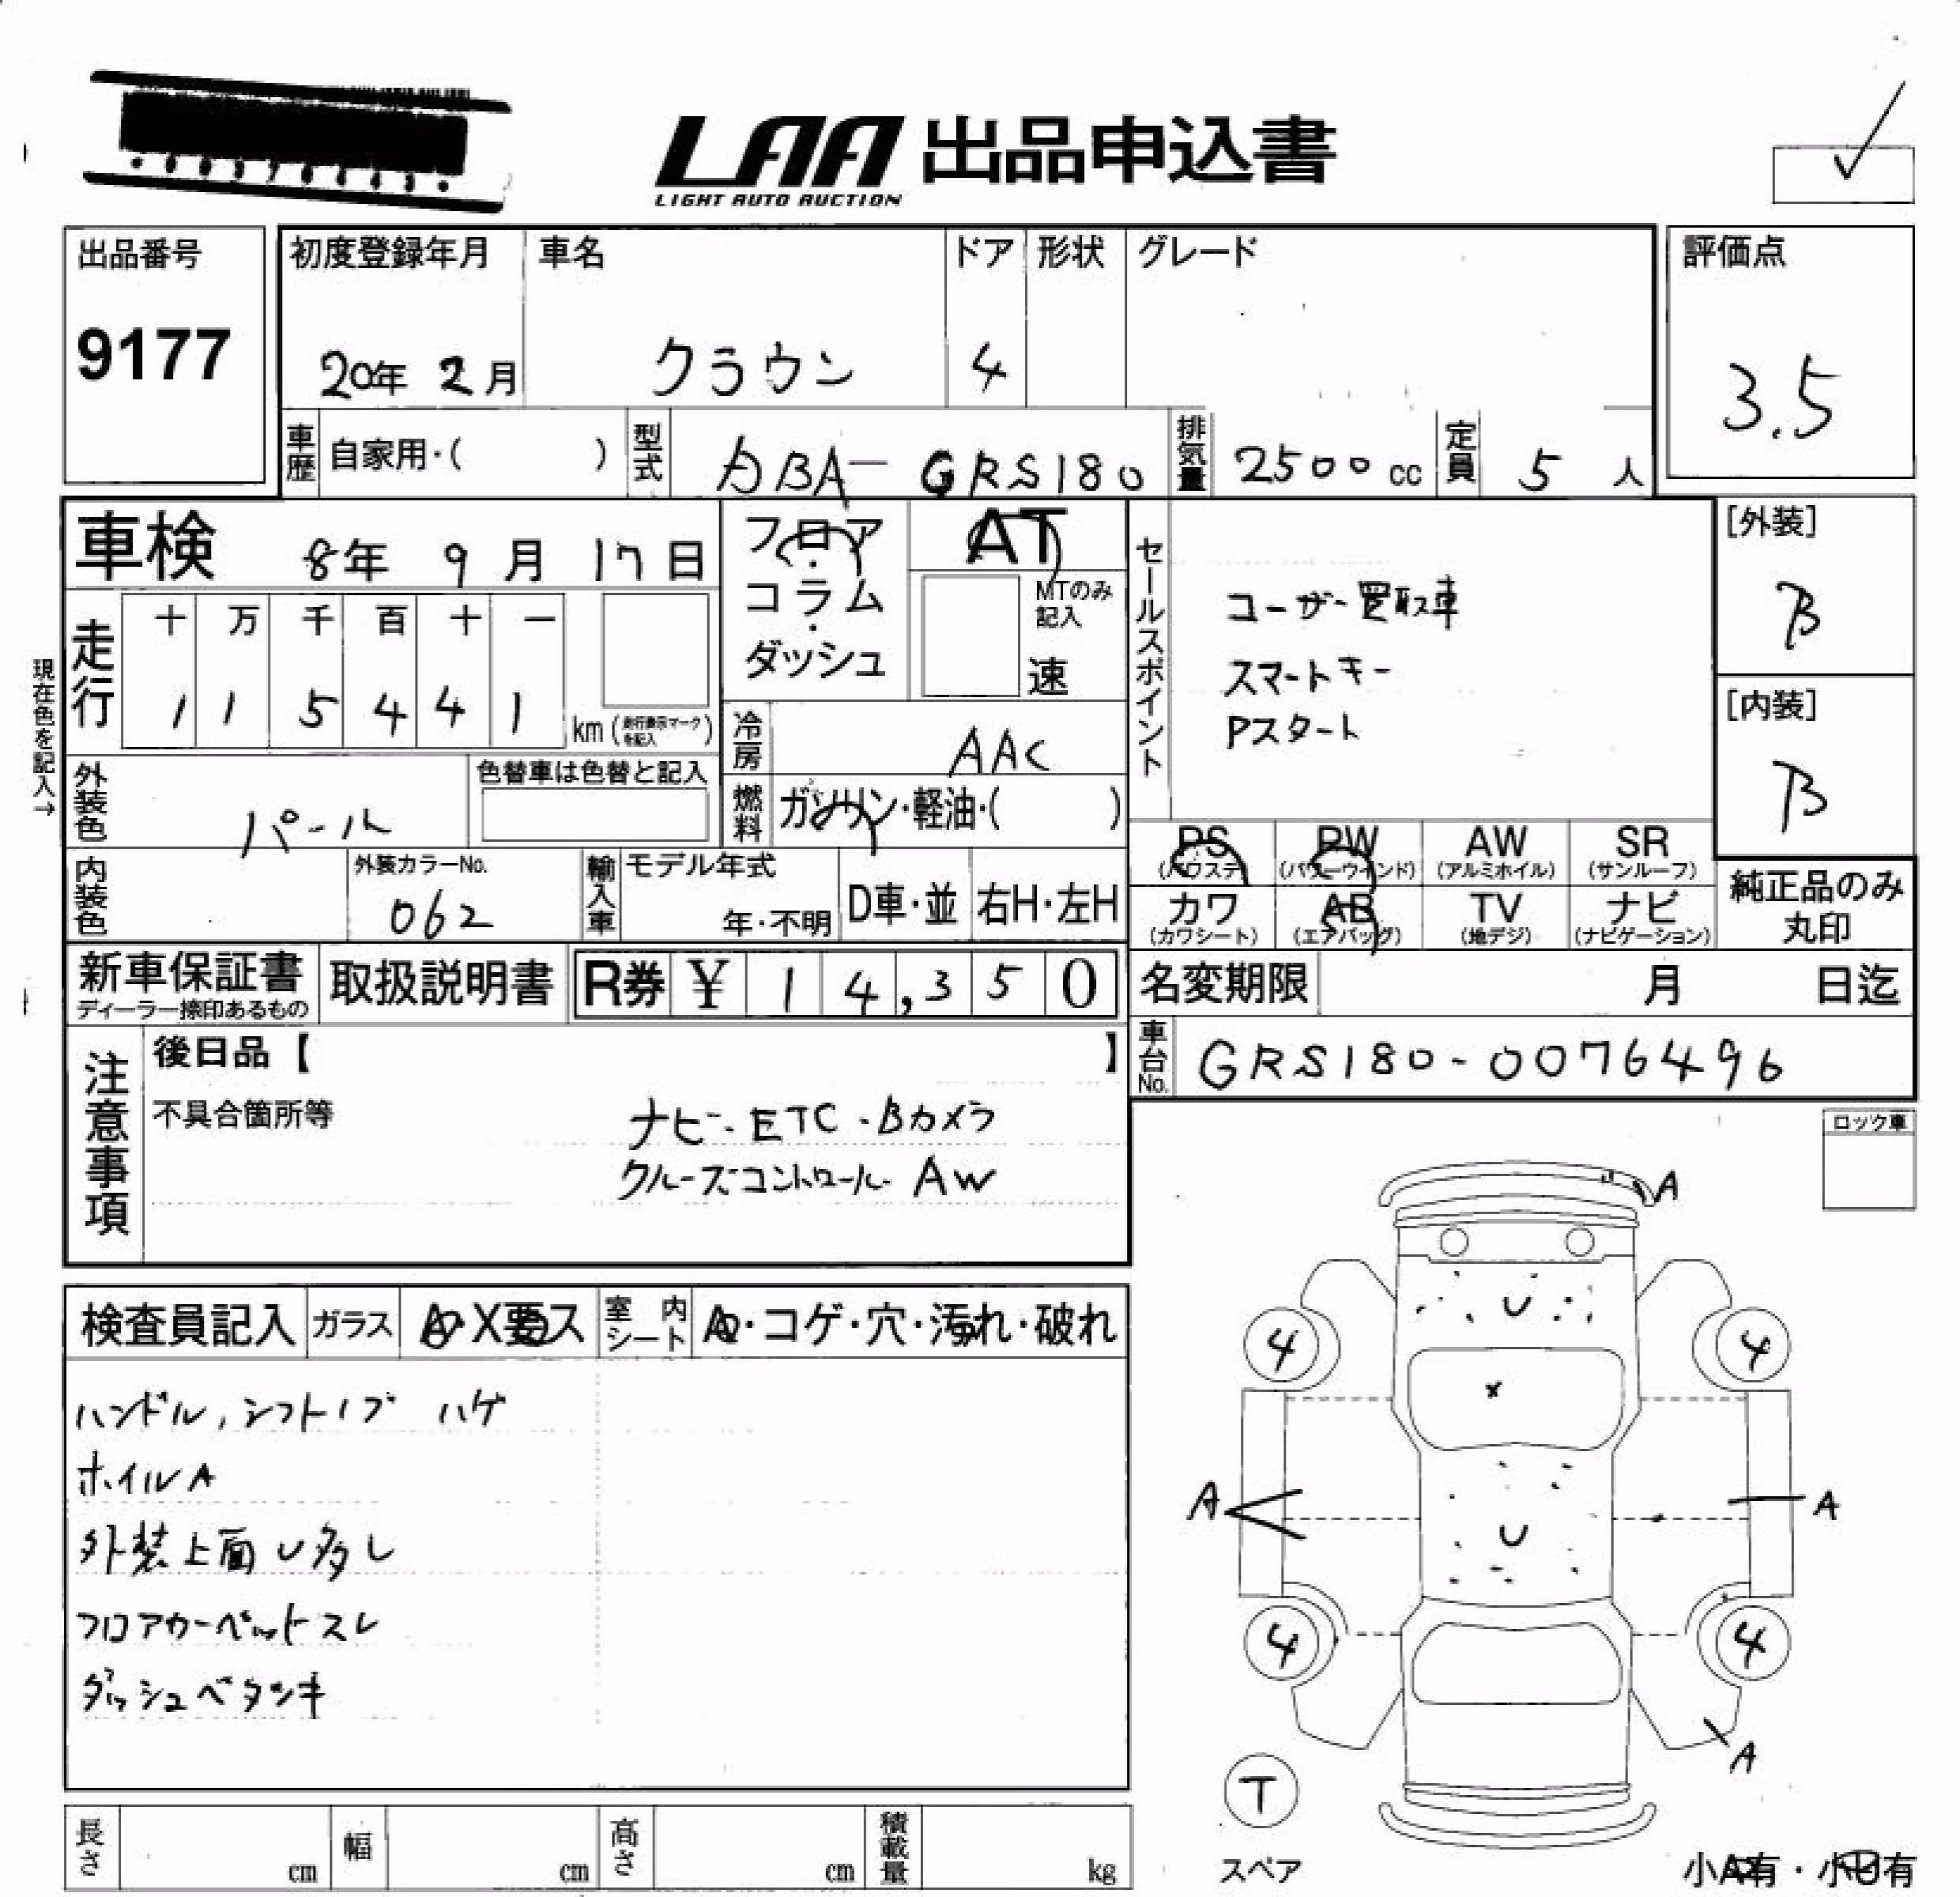 LAA 出品申込書
LIGHT AUTO AUCTION
出品番号
9177
初度登録年月
20年 2月
車名
クラウン
ドア
4
形状
グレード
評価点
3.5
車歴
自家用・( )
型式
DBA-GRS180
排気量
2500cc
定員
5人
車検 8年 9月 17日
フロア・コラム・ダッシュ
AT
MTのみ記入
速
セールスポイント
ユーザー買取車
スマートキー
Pスタート
[外装]
B
[内装]
B
現在色を記入→
走行
十 万 千 百 十 一
1 1 5 4 4 1
km(走行表示マークを記入)
冷房
AAC
外装色
パール
色替車は色替と記入
燃料
ガソリン・軽油・( )
内装色
外装カラーNo.
062
輸入車
モデル年式
年・不明
D車・並
右H・左H
PS (パワステ)
PW (パワーウインド)
AW (アルミホイル)
SR (サンルーフ)
カワ (カワシート)
AB (エアバッグ)
TV (地デジ)
ナビ (ナビゲーション)
純正品のみ丸印
新車保証書
ディーラー捺印あるもの
取扱説明書
R券 ¥ 14,350
名変期限 月 日迄
車台No.
GRS180-0076496
注意事項
後日品【 】
不具合箇所等
ナビ・ETC・Bカメラ
クルーズコントロール AW
ロック車
検査員記入
ガラス
A・X要ス
室内シート
A・コゲ・穴・汚れ・破れ
ハンドル,シフトノブ ハゲ
ホイルA
外装上面U多し
フロアカーペットスレ
ダッシュベタツキ
A
U
4 4
x
A A
U
4 4
A
T
スペア
小A有・小U有
長さ cm
幅 cm
高さ cm
積載量 kg